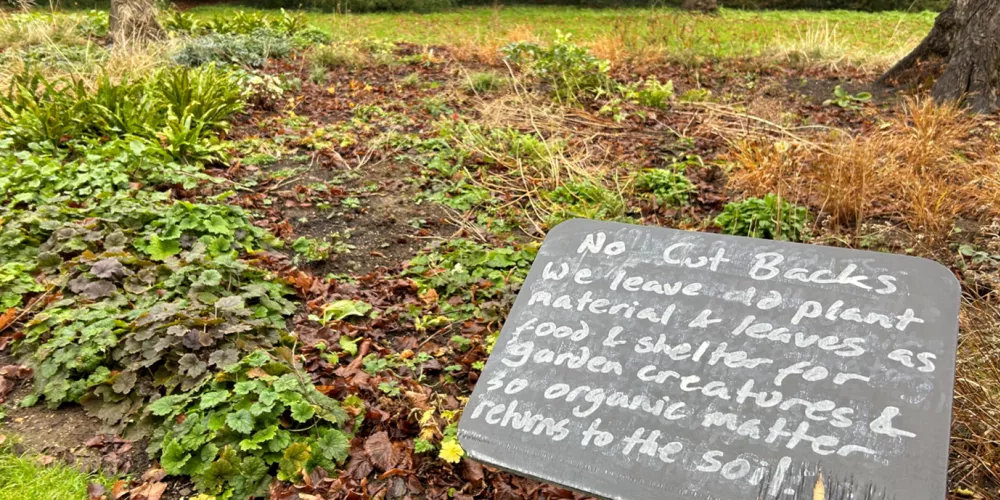 No Cut Backs
We leave old plant
material & leaves as
food & shelter for
garden creatures &
so organic matter
returns to the soil.